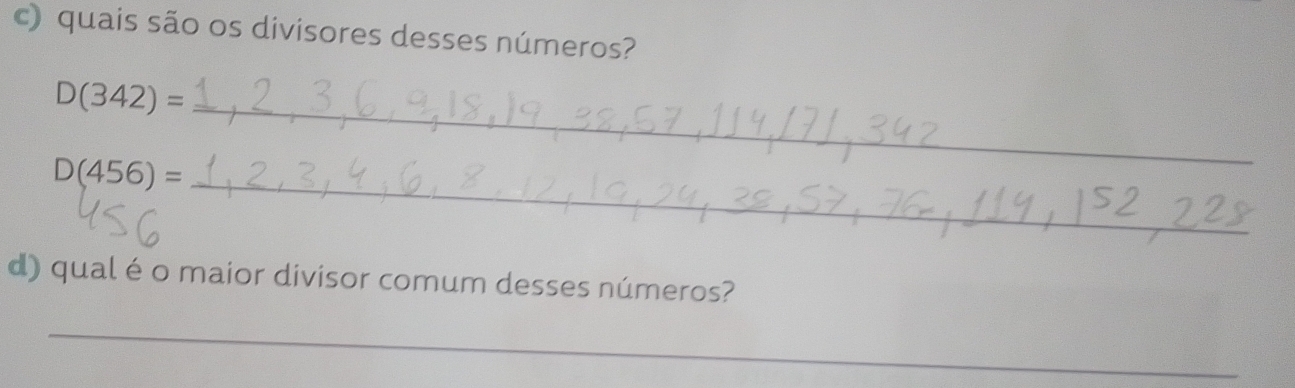 c) quais são os divisores desses números?
D(342) = 1, 2, 3, 6, 9, 18, 19, 38, 57, 114, 171, 342
D(456) = 1, 2, 3, 4, 6, 8, 12, 19, 24, 38, 57, 76, 114, 152, 228
456
d) qual é o maior divisor comum desses números?